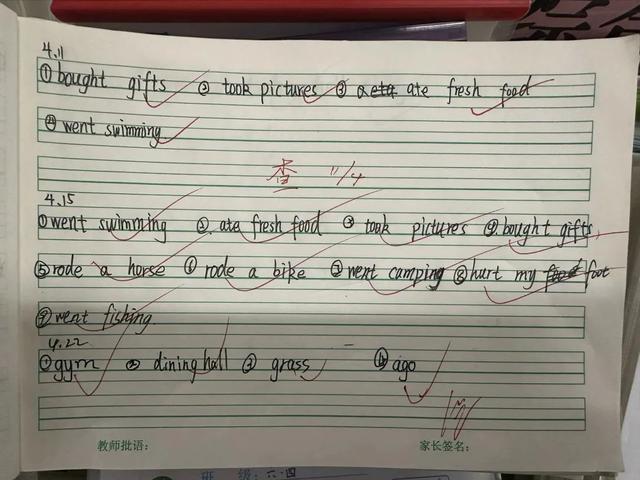 4.11
①bought gifts ②took pictures ③ate fresh food
④went swimming
查 11/4
4.15
①went swimming ②ate fresh food ③took pictures ④bought gifts
⑤rode a horse ⑥rode a bike ⑦went camping ⑧hurt my foot
⑨went fishing
4.22
①gym ②dining hall ③grass ④ago
教师批语： 家长签名：
班 级：六.四